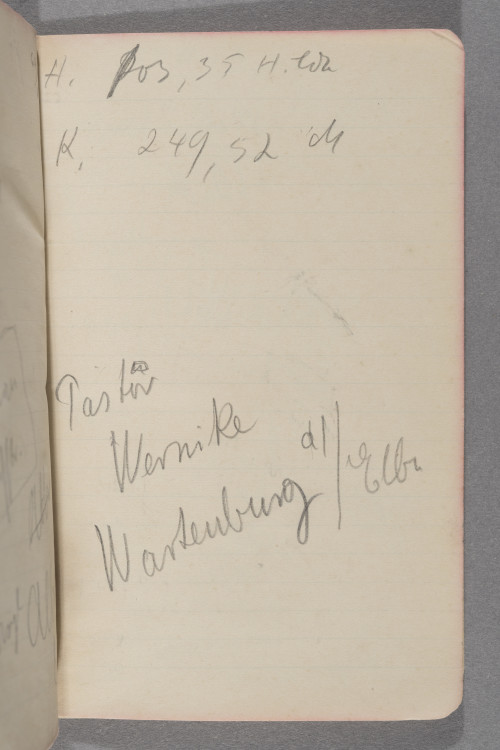 H. 103,35 H.
K. 249,52
Pastor
Wernike
Wartenburg d/Elbe